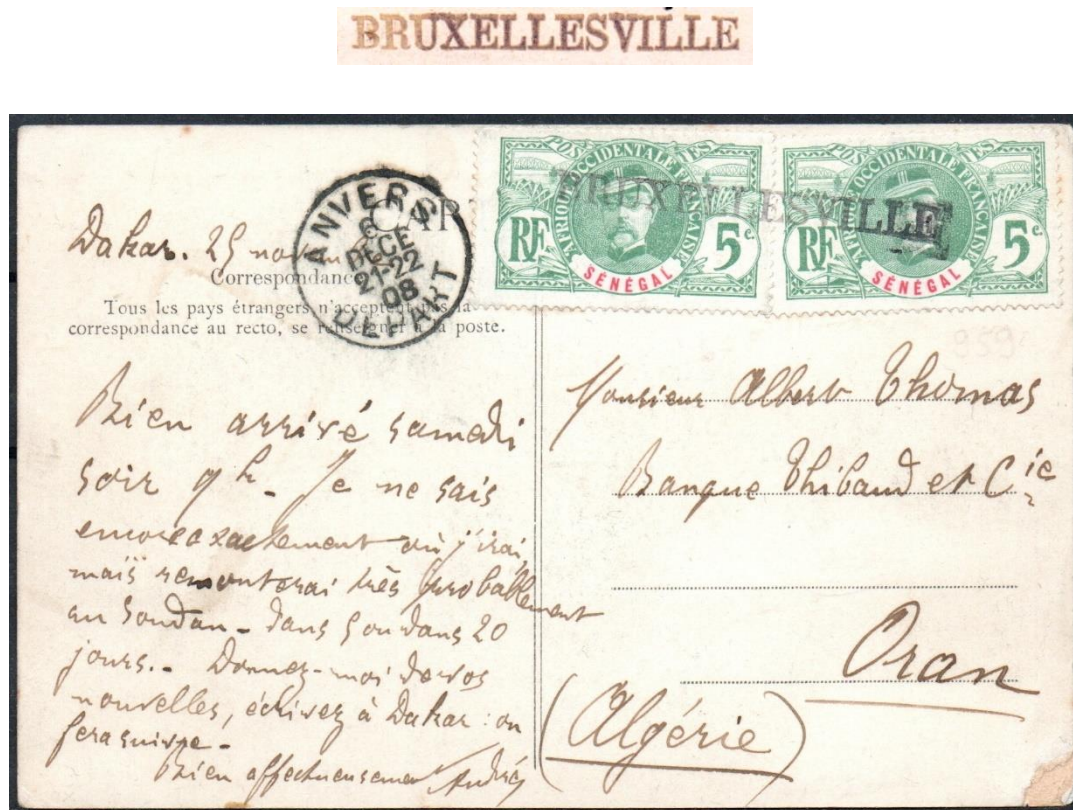 BRUXELLESVILLE
POSTES
AFRIQUE OCCIDENTALE FRANÇAISE
RF 5c
SÉNÉGAL
POSTES
AFRIQUE OCCIDENTALE FRANÇAISE
RF 5c
SÉNÉGAL
BRUXELLESVILLE
ANVERS
DECE
21-22
08
DEPART
Dakar. 25
Correspondance
Tous les pays étrangers n'acceptent pas la
correspondance au recto, se renseigner à la poste.
Bien arrivé samedi
soir 9h. Je ne sais
encore exactement où j'irai,
mais remonterai très probablement
au Soudan - dans 5 ou dans 20
jours. - Donnez-moi de vos
nouvelles, écrivez à Dakar : on
fera suivre -
Bien affectueusement André
Monsieur Albert Thomas
Banque Thibaud et Cie
Oran
(Algérie)
959